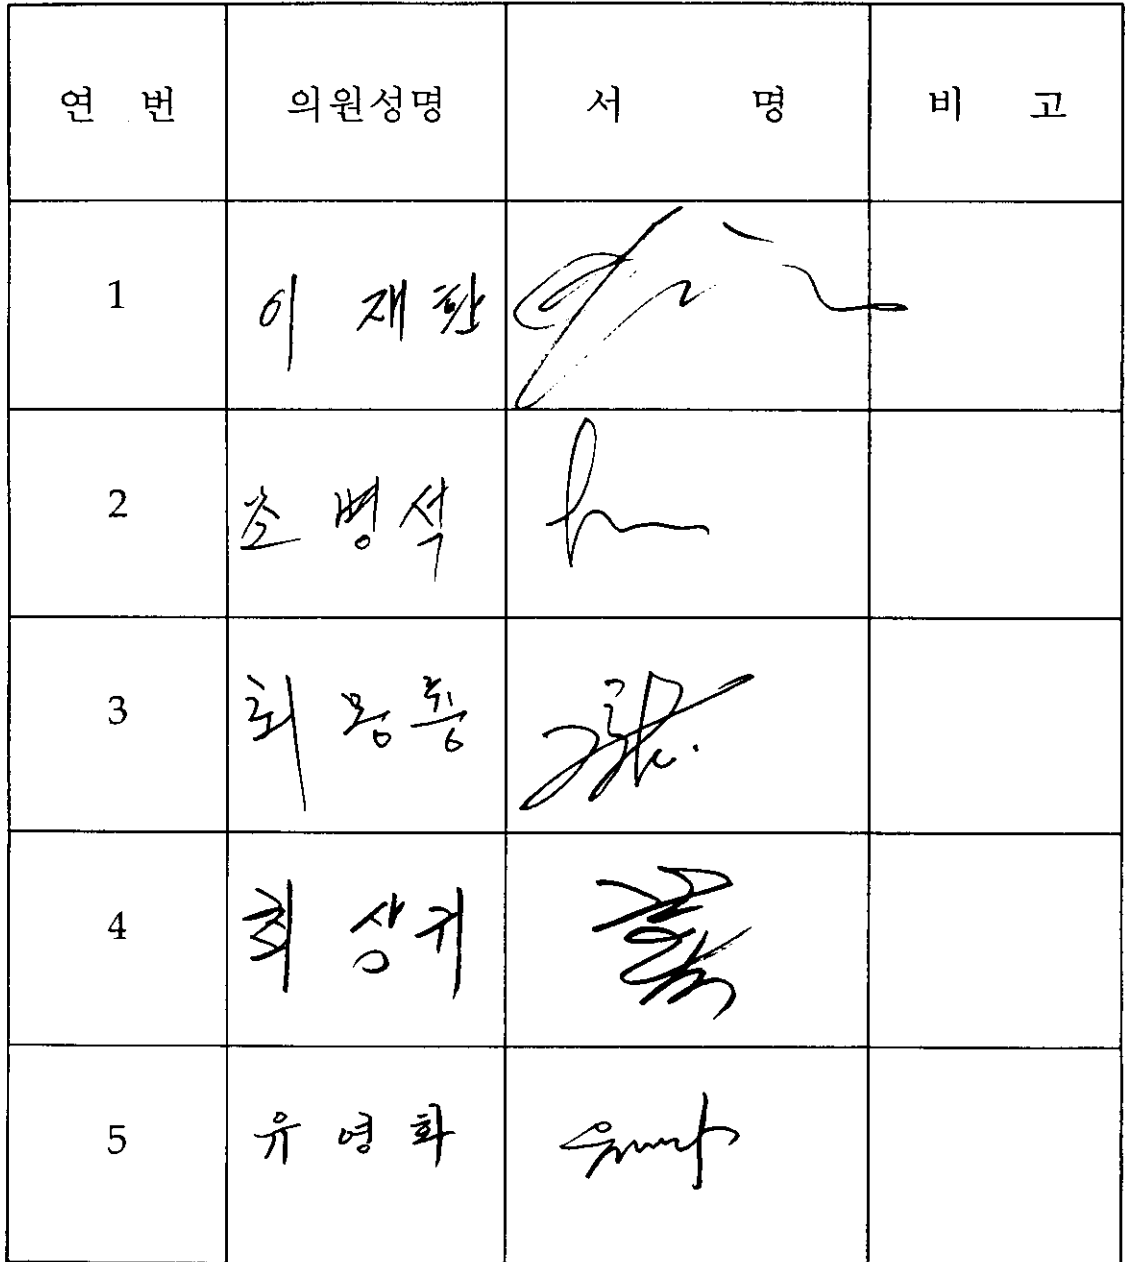 연 번 의원성명 서 명 비 고
1 이 재한
2 조병석
3 최
4 최 상귀
5 유 영 화